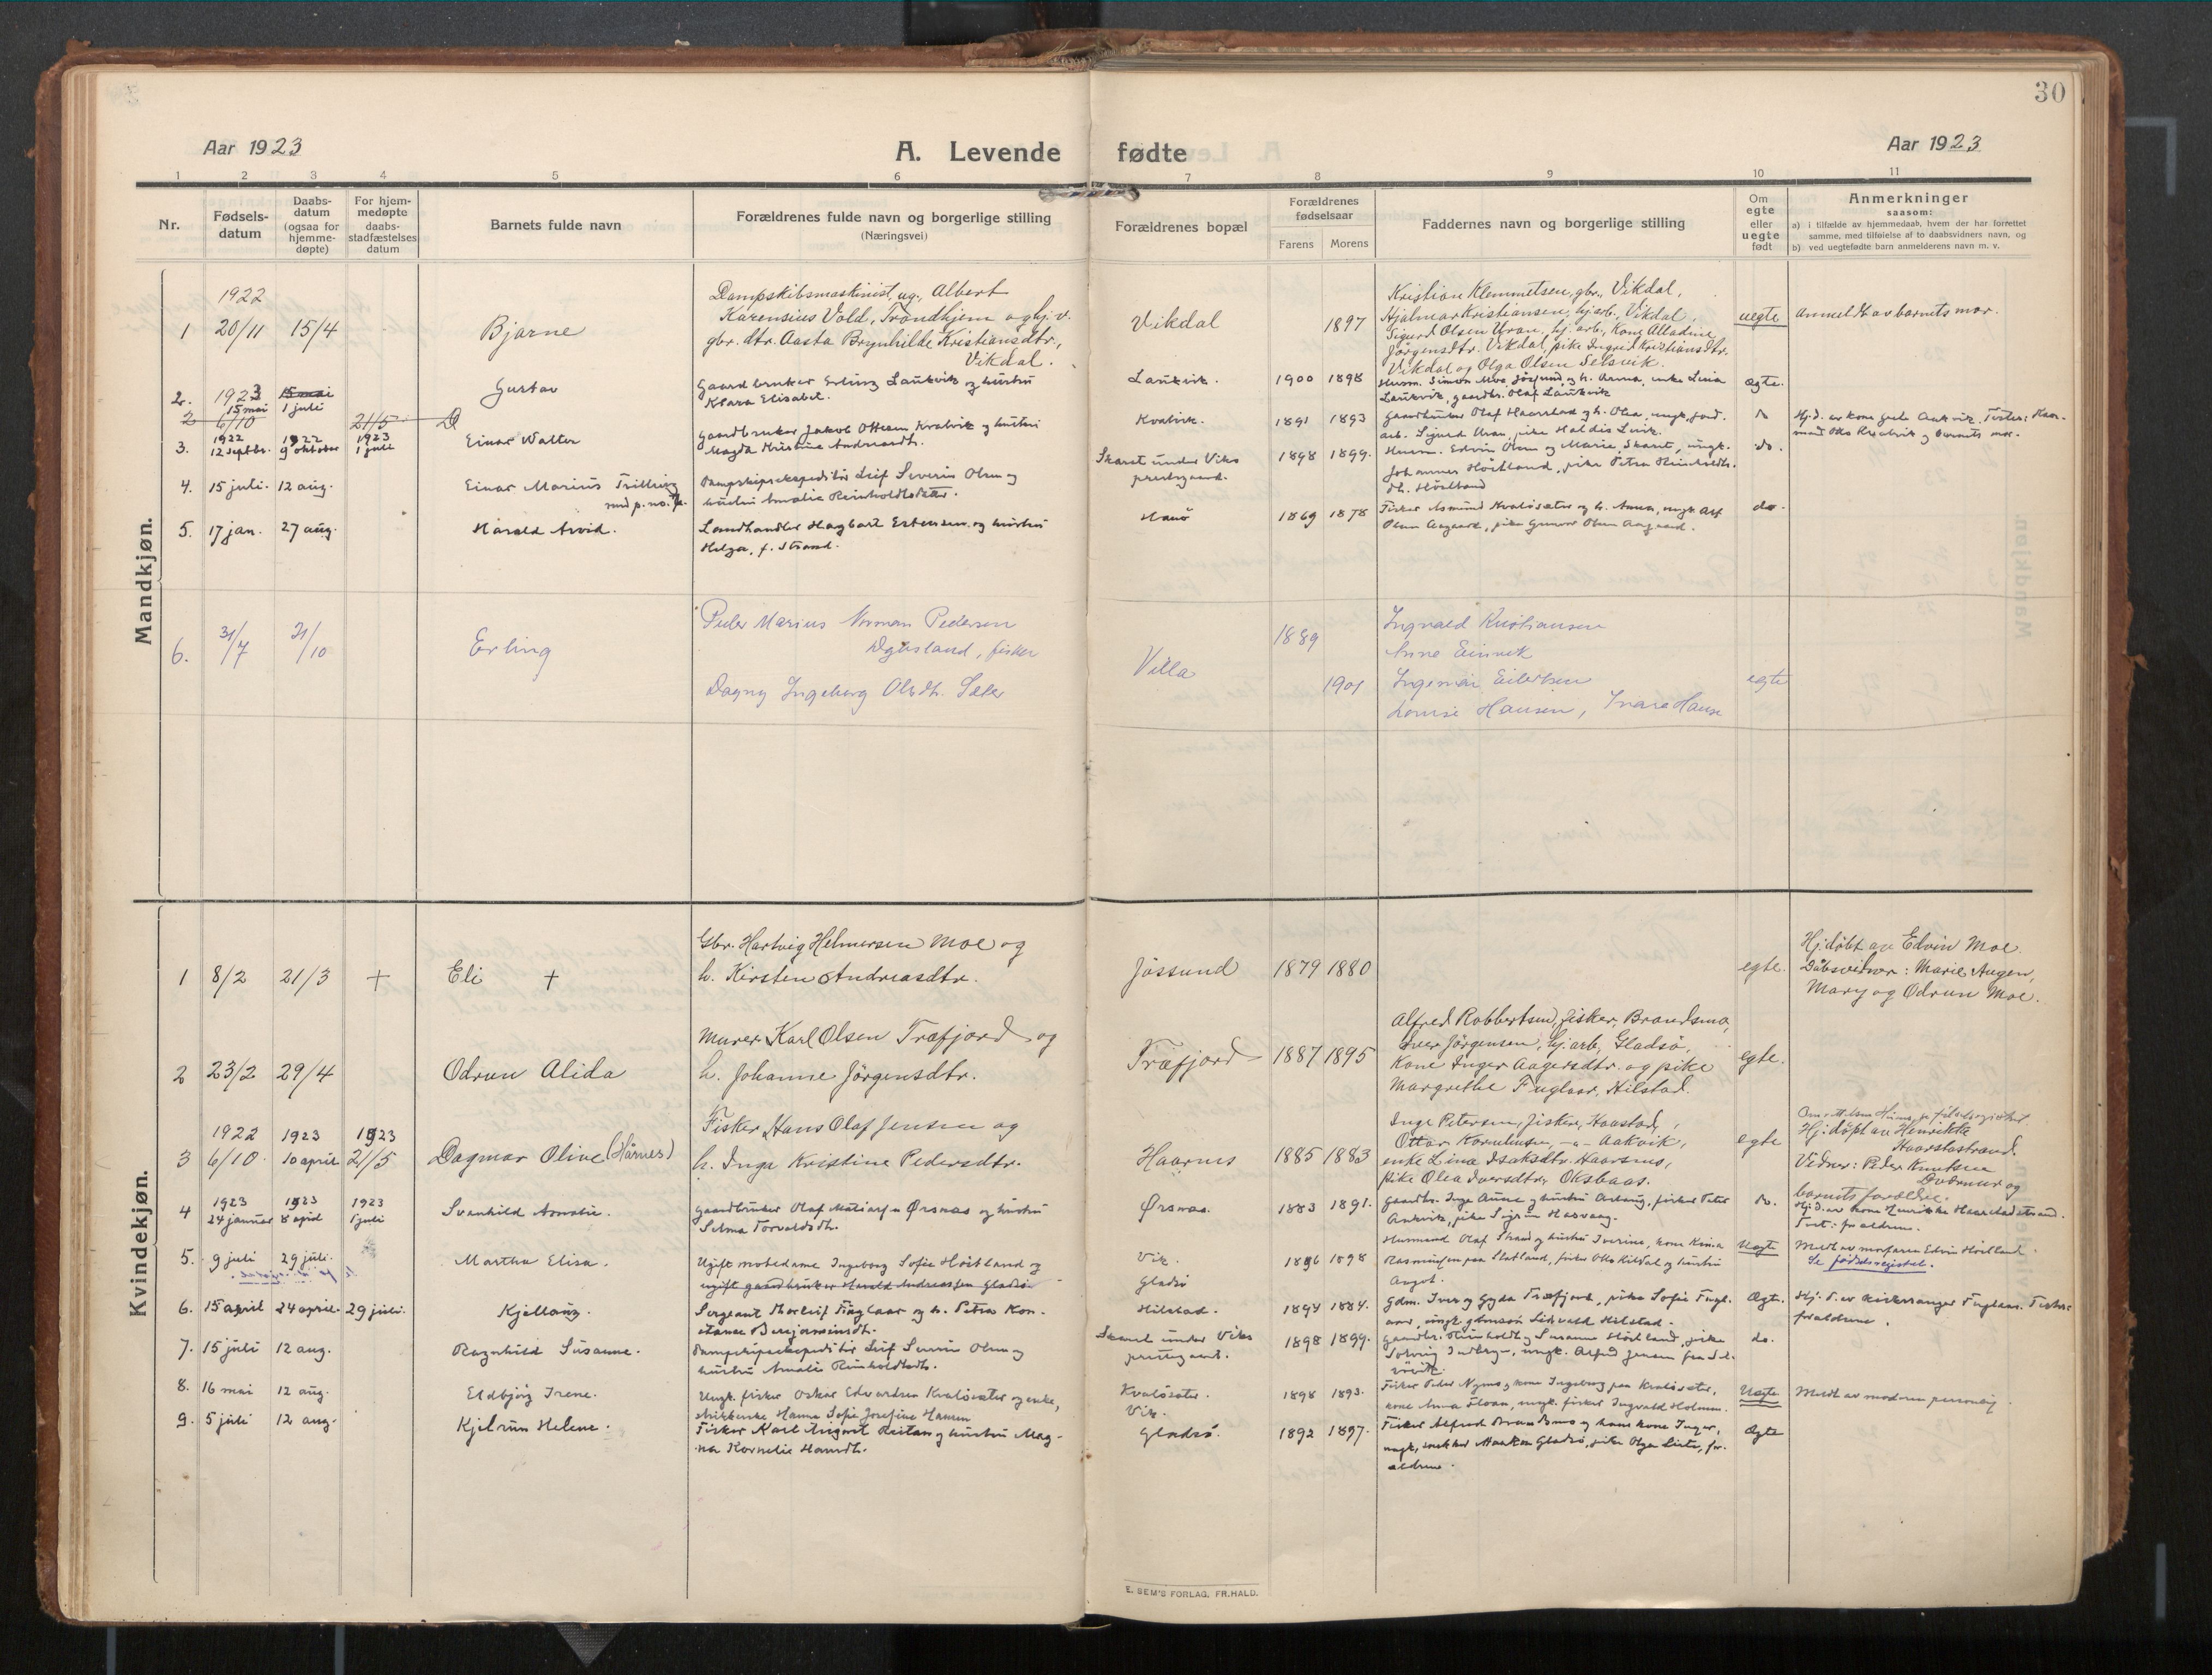 30
Aar 1923
A. Levende fødte
Aar 1923
1 2 3 4 5 6 7 8 9 10 11
Nr.
Fødsels-
datum
Daabs-
datum
(ogsaa for
hjemme-
døpte)
For hjem-
medøpte
daabs-
stadfæstelses
datum
Barnets fulde navn
Forældrenes fulde navn og borgerlige stilling
(Næringsvei)
Forældrenes bopæl
Forældrenes
fødselsaar
Farens Morens
Faddernes navn og borgerlige stilling
Om
egte
eller
uegte
født
Anmerkninger
saasom:
a) i tilfælde av hjemmedaab, hvem der har forrettet
samme, med tilføielse af to daabsvidners navn, og
b) ved uegtefødte barn anmelderens navn m. v.
Mandkjøn.
1922
1 20/11 15/4 Bjarne
Dampskibsmaskinist, ug., Albert
Karensius Vold, Trondhjem og hj. v.
gbr. dtr. Aasta Brynhilde Kristiansdtr.,
Vikdal.
Vikdal 1897
Kristian Klemmetsen, gbr., Vikdal,
Hjalmar Kristiansen, hj. arb., Vikdal,
Sigurd Olsen Uran, hj. arb., Kone Alladine
Jörgensdtr. Vikdal, pike Ingrid Kristiansdtr.
Vikdal og Olga Olsen Selsvik.
uegte anmeldt av barnets mor.
2. 1923 15 mai
15 mai 1 juli
Gustav
Gaardbruker Erling Laukvik og hustru
Klara Elisabet.
Laukvik. 1900 1898
Husm. Simon Moe, Jøssund, og h. Anna, enke Lina
Laukvik, gaardbr. Olaf Laukvik
ægte.
2 6/10 21/5 D
3. 1922 1922 1923
12 septbr. 9 oktober 1 juli
Einar Walter
Gaardbruker Jakob Ottesen Kvalvik og hustru
Magda Kristine Andreasdtr.
Kvalvik. 1891 1893
Gaardbruker Olaf Haarstad og h. Olea, ungk. jord.
arb. Sigurd Uran, pike Haldis Lervik.
do
Hj.d. av kone Gusta Aakvik. Tester: Haar-
mand Otto Kvalvik og barnets mor.
4. 15 juli. 12 aug. Einar Marius Trilling
med p. no. 7.
Dampskipsekspeditör Leif Severin Olsen og
hustru Amalie Reinholdtsdatter.
Skaret under Viks
prestegaard. 1898 1899.
Husm. Edvin Olsen og Marie, Skaret, ungk.
Johannes Höstland, pike Petra Reinholdtr.
dtr. Höstland
do.
5. 17 jan. 27 aug. Harald Arvid.
Landhandler Hagbart Estensen og hustru
Helga, f. Strand.
1869 1878
Fisker Asmund Kvalösæter og h. Anna, ungk. Alf
Olsen Aagaard, pike Gunvor Olsen Aagaard.
do.
6. 31/7 31/10 Erling
Peder Marius Norman Pedersen
fisker
Dagny Ingeborg Olsdtr. Sæter
Villa 1889
1901
Ingvald Kristiansen
Anna
Ingemar Eilertsen
Louise Hansen,
egte
Kvindekjøn.
1 8/2 21/3 + Eli +
Gbr. Hartvig Helmersen Moe og
h. Kirsten Andreasdtr.
Jössund 1879 1880 egte.
Hj. döbt av Edvin Moe.
Dåbsvidner: Marie Augen,
Mary og Odrun Moe.
2 23/2 29/4 Odrun Alida
Murer Karl Olsen Træfjord og
h. Johanne Jörgensdtr.
Træfjord 1887 1895
Alfred Robbertsen, fisker, Brandsmo,
Iver Jörgensen, hj. arb., Gladsö,
Kone Inger Aagersdtr. og pike
Margrethe Fuglaar, Hilstad.
egte.
3 1922 1923 1923
6/10 10 april 21/5
Dagmar Olive (Hårnes)
Fisker Hans Olaf Jensen og
h. Inga Kristine Pedersdtr.
Haarnes 1885 1883
Inge Petersen, fisker, Haarstad,
Ottar Korneliusen, -"- Aakvik,
enke Lina Isaksdtr. Haarsnes,
pike Olea Iversdtr, Oksbaas.
egte
Hj. döpt av Henrikke
Haarstastrand.
Vidner: Peder Knutsen
Dværmur og
barnets forældre.
4 1923 1923 1923
24 januar 8 april 1 juli
Svanhild Amalie.
Gaardbruker Olaf Ørsnes og hustru
Selma Torvaldsdtr.
Ørsnes. 1883 1891.
Gaardbr. Inge Aune og hustru Aslaug, fisker Peter
Aakvik, pike Sigrun Hasvaag.
do.
Hj.d. av kone Henrikke Haarstadstrand.
Test: forældrene.
5. 9 juli 29 juli. Martha Elisa.
Ugift motedame Ingeborg Sofie Höstland og
ugift gaardbruker Harald Andreassen Gladsö
Vik.
Gladsö 1896 1898
Husmand Olaf Skard og hustru Iverine, kone
Rasmussen paa Slotland, fisker Otto Kildal og hustru
Angot.
Uegte
Meldt av morfaren Edvin Höstland.
Se fødselsregistret.
6. 15 april 24 april. 29 juli. Kjellaug.
Sergeant Thorleif Fuglaar og h. Petra Kon-
stanse Benjaminsdtr.
Hilstad. 1894 1884.
Gdm. Iver og Gyda Træfjord, pike Sofie Fugl-
aar, ungk. Sidvald Hilstad.
Ægte.
Hj. d. av kirkesanger Fuglaar. Tester:
forældrene.
7. 15 juli 12 aug. Ragnhild Susanne.
Dampskipsekspeditör Leif Severin Olsen og
hustru Amalie Reinholdtsdtr.
Skaret under Viks
prestegaard. 1898 1899.
Gaardbr. Reinholdt og Susanne Höstland, pike
Solveig Indberg, ungk. Alfred Jensen fra Sel-
do.
8. 16 mai 12 aug. Eldbjörg Irene.
Ungk. fisker Oskar Edvardsen Kvalösæter og enke,
strikkerske Hanna Sofie Josefine Hansen
Kvalösæter.
Vik. 1898 1893.
Fisker Peder Nyms og kone Ingeborg paa Kvalösæter,
kone Anna Floan, ungk. fisker Ingvald Holmen.
Uegte
Meldt av moderen personlig.
9. 5 juli 12 aug. Kjelrun Helene.
Fisker Karl August Reitan og hustru Mag-
na Kornelie Hansdtr.
Gladsö. 1892 1897.
Fisker Alfred Brandsmo og hans kone Inger,
ungk. snekker Haakon Gladsö, pike Olga Lister, for-
ældrene.
Ægte
E. SEM'S FORLAG. FR.HALD.